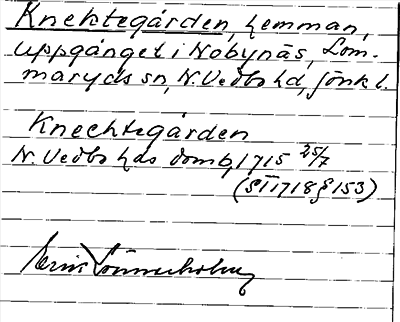 Knektegården, hemman,
uppgånget i Nobynäs, Lom-
maryds sn, N. Vedbo hd, Jönk l.
Knechtegården
N. Vedbo hds domb, 1715 25/7
(SI 1718 § 153)
Erik Lönnerholm